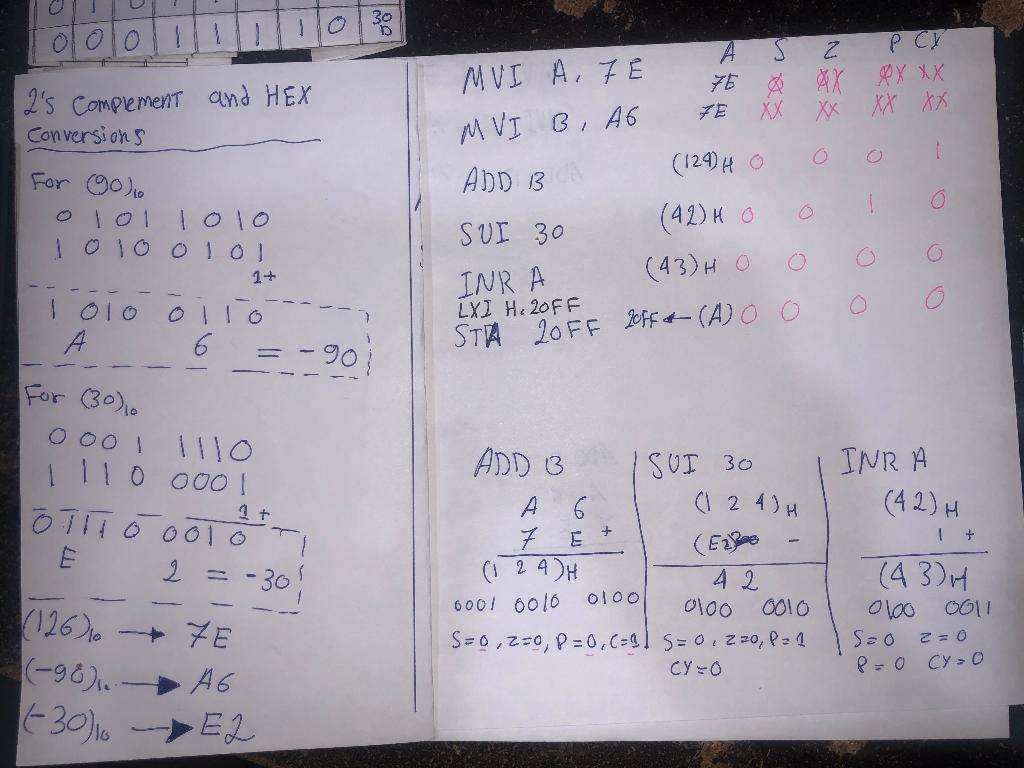 0 0 0 1 1 1 1 0 30 D
2's Complement and HEX
Conversions
For (90)10
0 1 0 1 1 0 1 0
1 0 1 0 0 1 0 1
1+
1 0 1 0 0 1 1 0
A 6 = -90
For (30)10
0 0 0 1 1 1 1 0
1 1 1 0 0 0 0 1
1+
0 1 1 1 0 0 0 1 0
E 2 = -30
(126)10 → 7E
(-90)10 → A6
(-30)10 → E2
A S Z P CY
MVI A, 7E 7E
MVI B, A6 7E XX XX XX XX
ADD B (124)H 0 0 0 1
SUI 30 (42)H 0 0 1 0
INR A (43)H 0 0 0 0
LXI H, 20FF
STA 20FF 20FF ← (A) 0 0 0 0
ADD B
A 6
7 E +
(1 2 4)H
0001 0010 0100
S=0, Z=0, P=0, C=1
SUI 30
(1 2 4)H
(E2 -
4 2
0100 0010
S=0, Z=0, P=1
CY=0
INR A
(42)H
1 +
(43)H
0100 0011
S=0 Z=0
P=0 CY=0